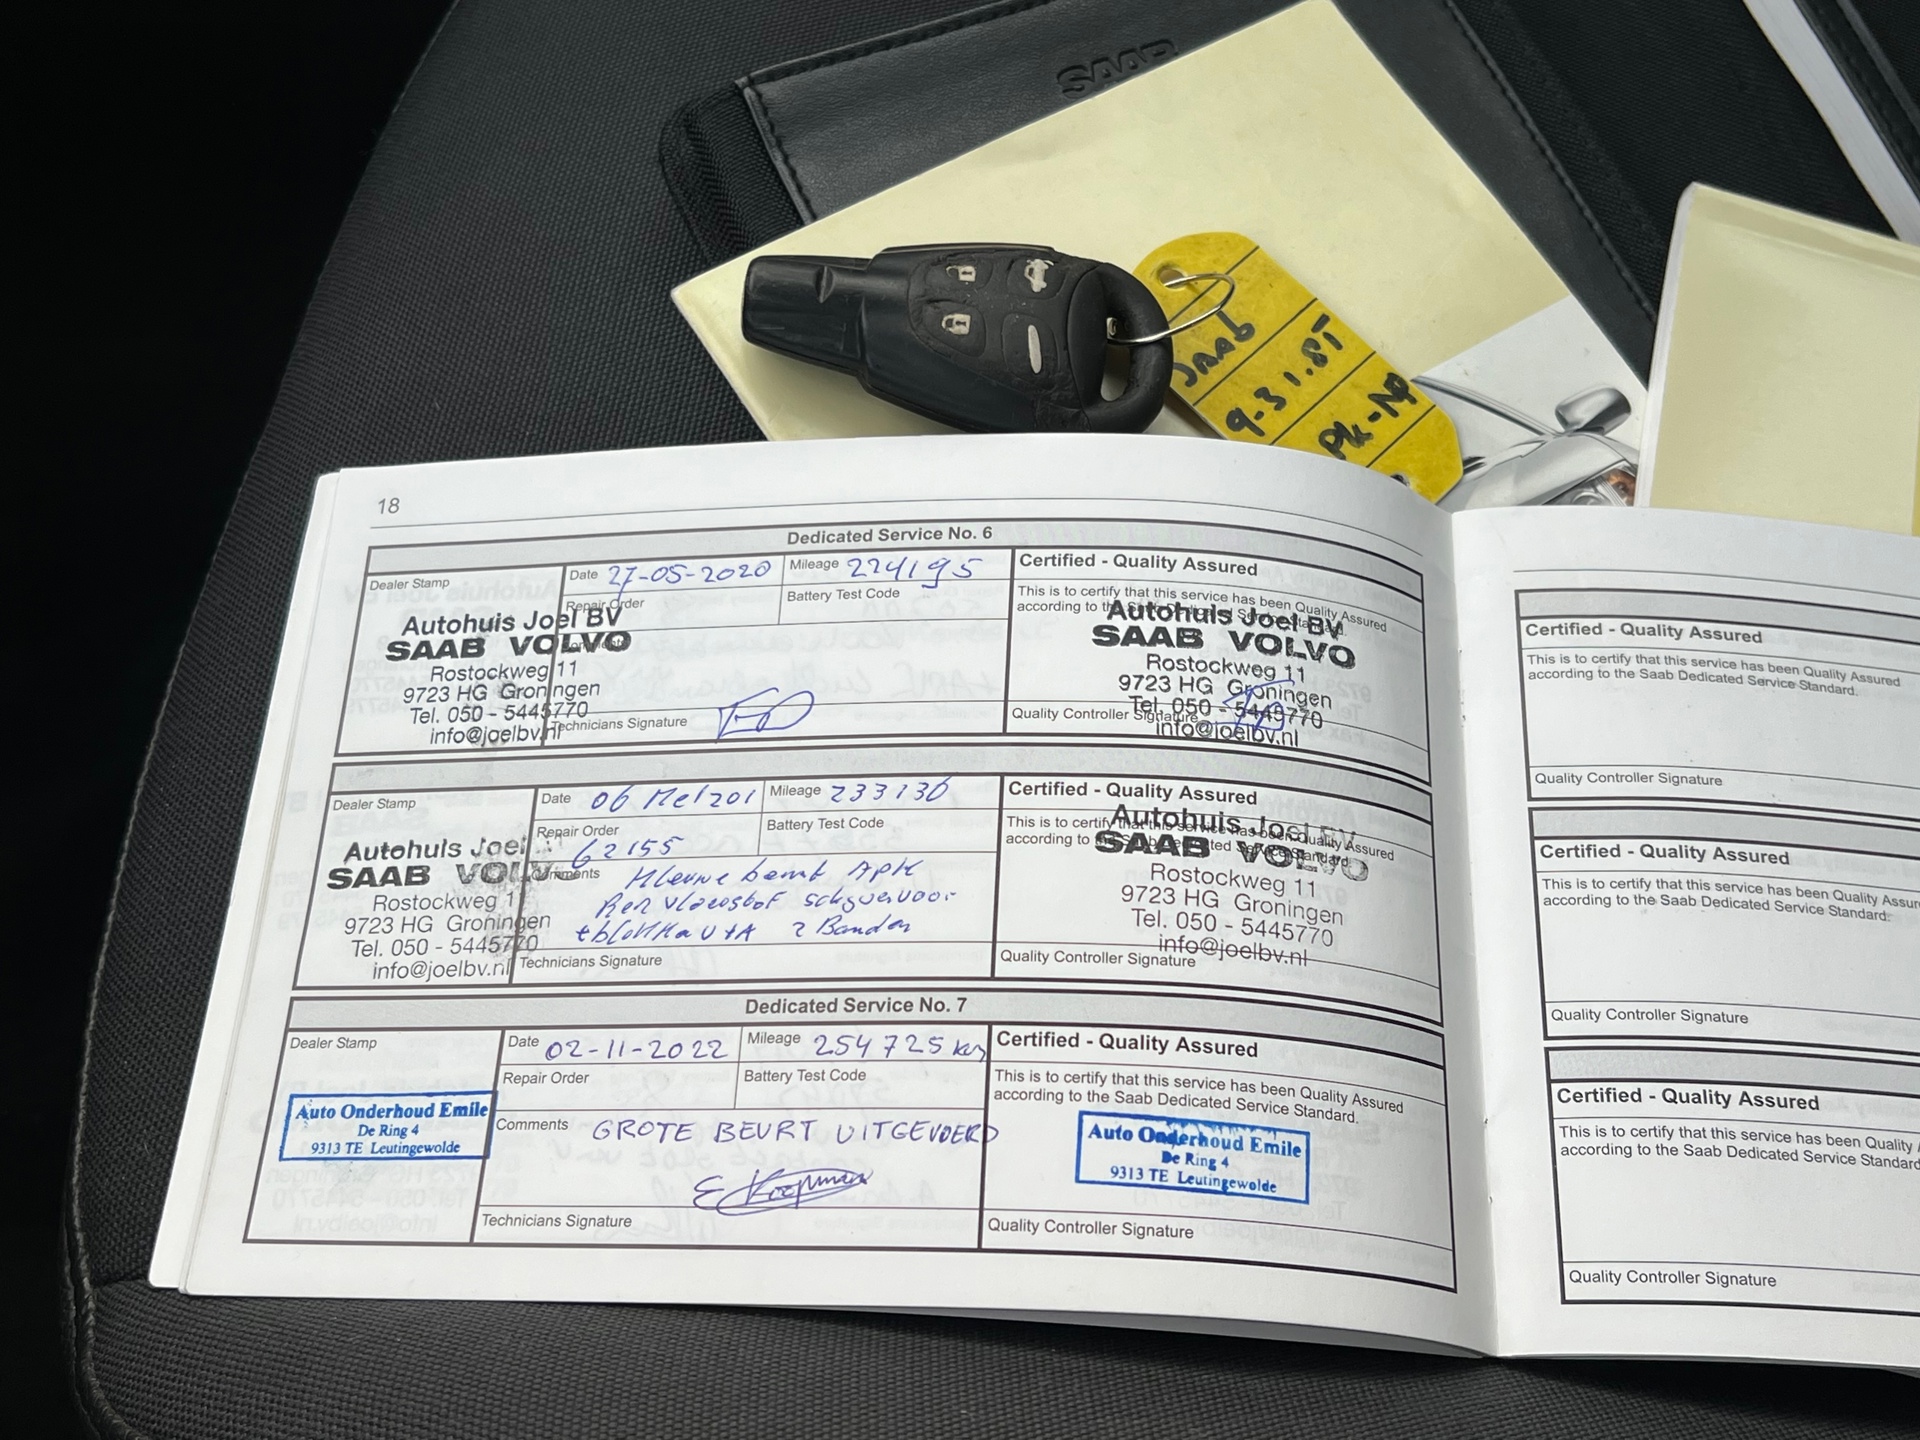 SAAB
SAAB
9-3 1.8T
18
Dedicated Service No. 6
Dealer Stamp
Date 27-05-2020
Mileage 224195
Repair Order
Battery Test Code
Autohuis Joel BV
SAAB VOLVO
Rostockweg 11
9723 HG Groningen
Tel. 050 - 5445770
info@joelbv.nl
Technicians Signature
Certified - Quality Assured
This is to certify that this service has been Quality Assured
according to the Saab Dedicated Service Standard.
Autohuis Joel BV
SAAB VOLVO
Rostockweg 11
9723 HG Groningen
Tel. 050 - 5445770
info@joelbv.nl
Quality Controller Signature
Dealer Stamp
Date 06
Mileage 233130
Repair Order
62155
Battery Test Code
Comments
2 Banden
Autohuis Joel
SAAB VOLVO
Rostockweg 1
9723 HG Groningen
Tel. 050 - 5445770
info@joelbv.nl
Technicians Signature
Certified - Quality Assured
This is to certify that this service has been Quality Assured
according to the Saab Dedicated Service Standard.
Autohuis Joel BV
SAAB VOLVO
Rostockweg 11
9723 HG Groningen
Tel. 050 - 5445770
info@joelbv.nl
Quality Controller Signature
Dedicated Service No. 7
Dealer Stamp
Date 02-11-2022
Mileage 254725 km
Repair Order
Battery Test Code
Comments GROTE BEURT UITGEVOERD
E Koopman
Auto Onderhoud Emile
De Ring 4
9313 TE Leutingewolde
Technicians Signature
Certified - Quality Assured
This is to certify that this service has been Quality Assured
according to the Saab Dedicated Service Standard.
Auto Onderhoud Emile
De Ring 4
9313 TE Leutingewolde
Quality Controller Signature
Certified - Quality Assured
This is to certify that this service has been Quality Assured
according to the Saab Dedicated Service Standard.
Quality Controller Signature
Certified - Quality Assured
This is to certify that this service has been Quality Assur
according to the Saab Dedicated Service Standard.
Quality Controller Signature
Certified - Quality Assured
This is to certify that this service has been Quality
according to the Saab Dedicated Service Standard
Quality Controller Signature